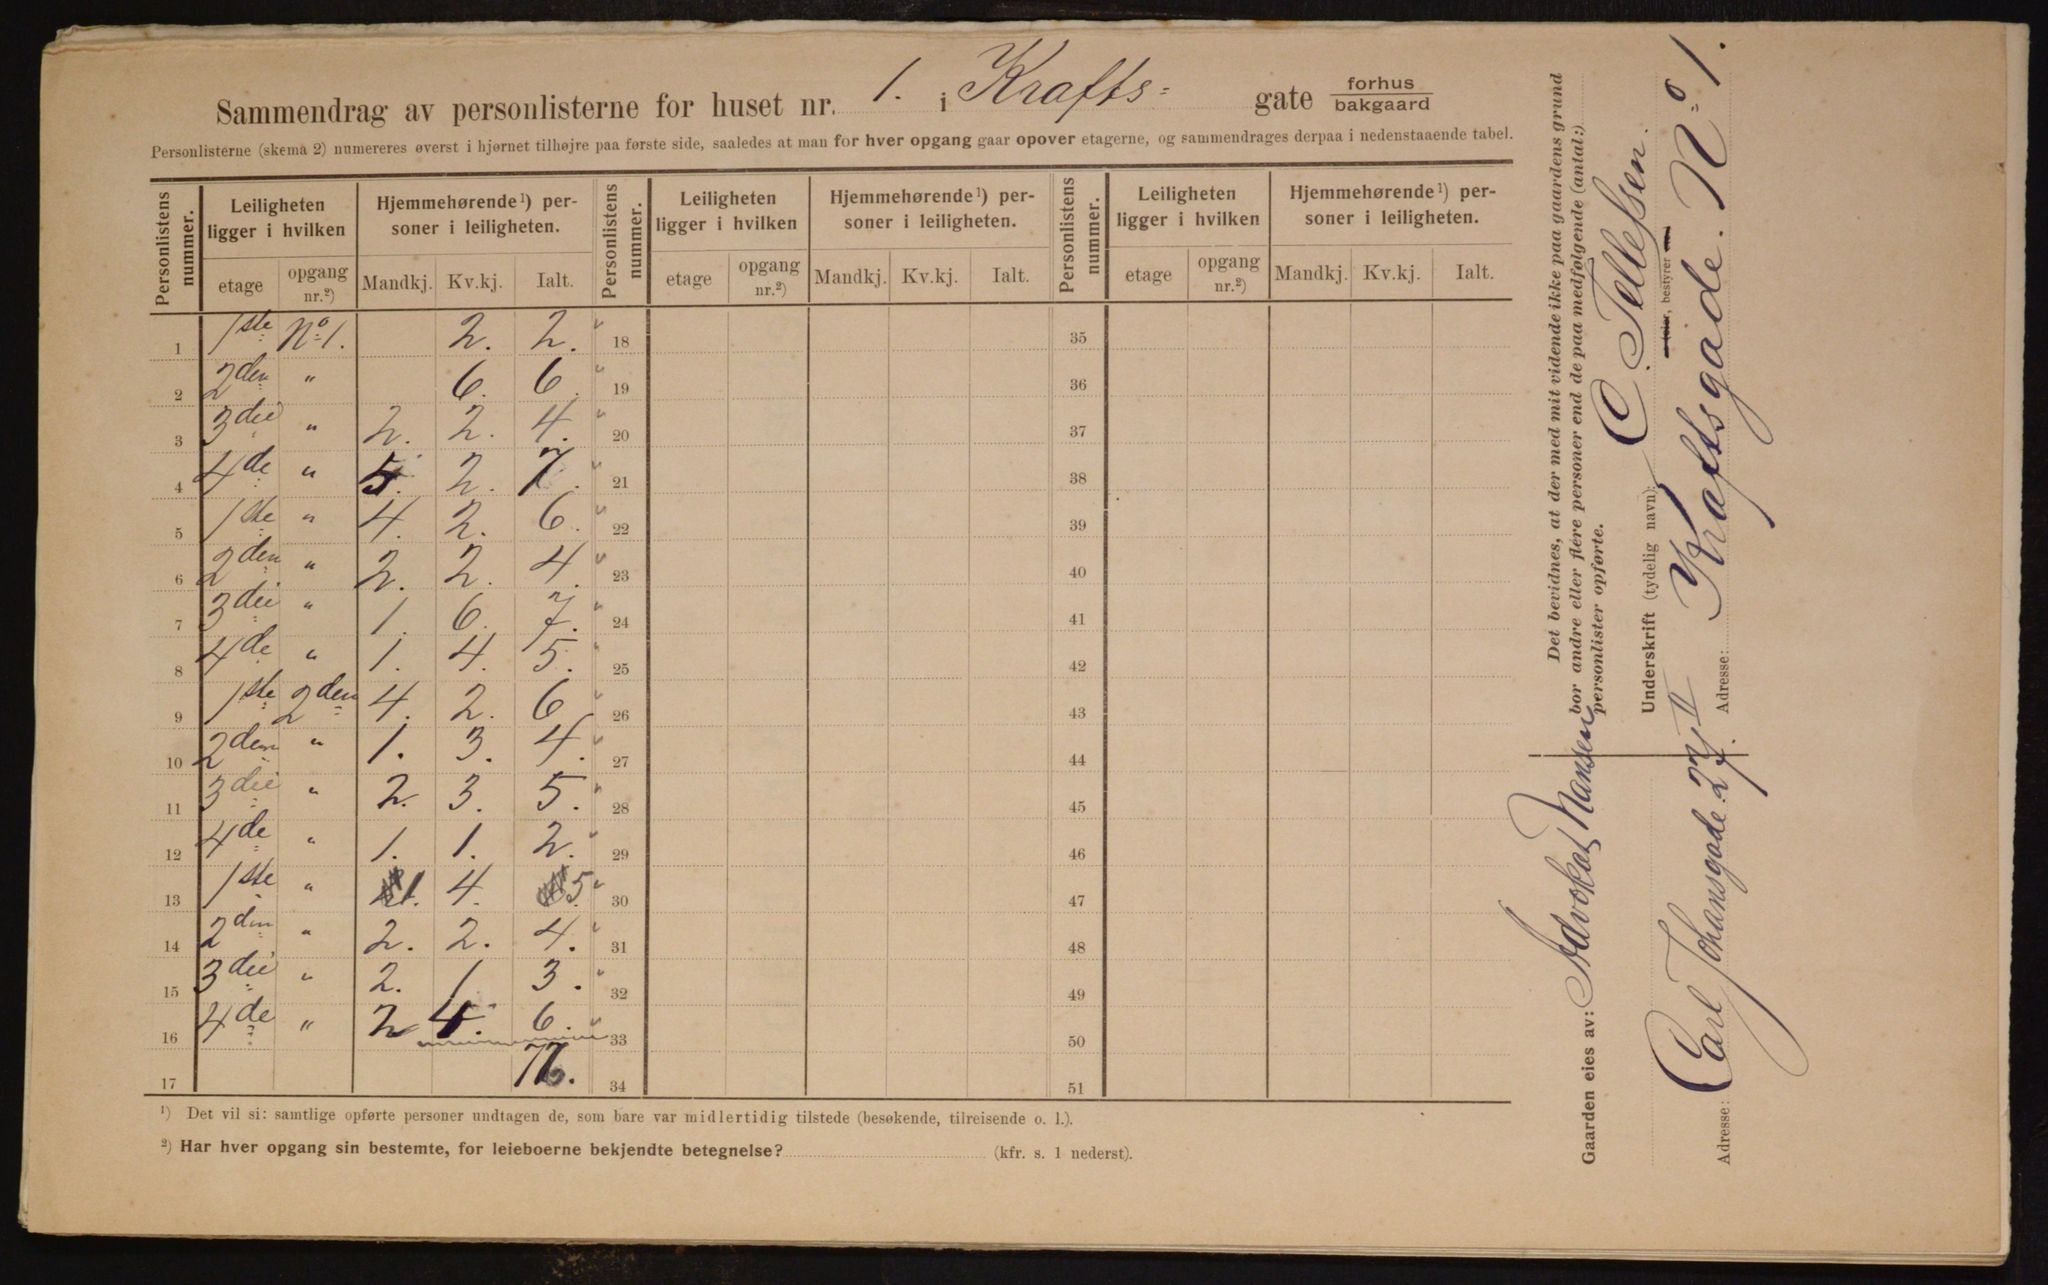 Sammendrag av personlisterne for huset nr. 1. i Krafts= gate forhus / bakgaard
Personlisterne (skema 2) numereres øverst i hjørnet tilhøjre paa første side, saaledes at man for hver opgang gaar opover etagerne, og sammendrages derpaa i nedenstaaende tabel.
Personlistens nummer. Leiligheten ligger i hvilken Hjemmehørende ¹) personer i leiligheten. Personlistens nummer. Leiligheten ligger i hvilken Hjemmehørende ¹) personer i leiligheten. Personlistens nummer. Leiligheten ligger i hvilken Hjemmehørende ¹) personer i leiligheten.
etage opgang nr.²) Mandkj. Kv.kj. Ialt. etage opgang nr.²) Mandkj. Kv.kj. Ialt. etage opgang nr.²) Mandkj. Kv.kj. Ialt.
1 1ste No 1. 2. 2. 18 35
2 2den " 6. 6. 19 36
3 3die " 2. 2. 4. 20 37
4 4de " 5. 2. 7. 21 38
5 1ste " 4. 2. 6. 22 39
6 2den " 2. 2. 4. 23 40
7 3die " 1. 6. 7. 24 41
8 4de " 1. 4. 5. 25 42
9 1ste 2den 4. 2. 6. 26 43
10 2den " 1. 3. 4. 27 44
11 3die " 2. 3. 5. 28 45
12 4de " 1. 1. 2. 29 46
13 1ste " 1. 4. 5. 30 47
14 2den " 2. 2. 4. 31 48
15 3die " 2. 1 3. 32 49
16 4de " 2 4. 6. 33 50
17 34 51
¹) Det vil si: samtlige opførte personer undtagen de, som bare var midlertidig tilstede (besøkende, tilreisende o. l.).
²) Har hver opgang sin bestemte, for leieboerne bekjendte betegnelse? (kfr. s. 1 nederst).
Det bevidnes, at der med mit vidende ikke paa gaardens grund
bor andre eller flere personer end de paa medfølgende (antal:)
personlister opførte.
Underskrift (tydelig navn): C. Tellefsen.
eier, bestyrer
Adresse: Kraftsgade. No 1.
Gaarden eies av: Advokat Nansen
Adresse: Carl Johansgade 27 II